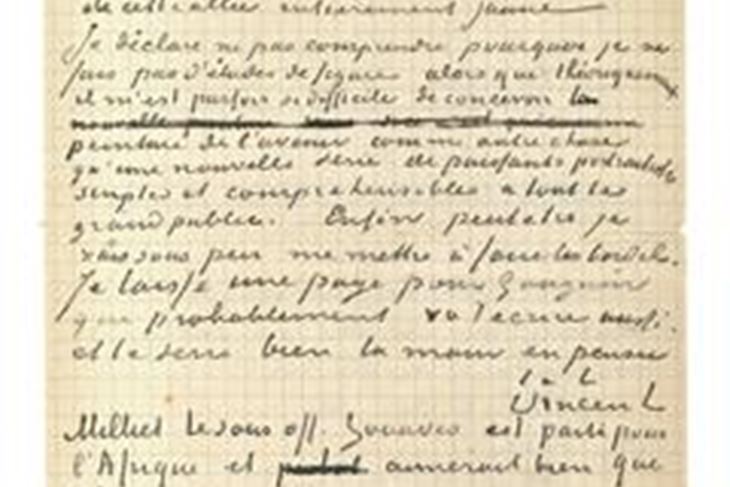 de cette allée entièrement jaune
Je déclare ne pas comprendre pourquoi je ne
fais pas d'études de figure alors que théoriquement
il m'est parfois si difficile de concevoir la
peinture de l'avenir comme autre chose
qu'une nouvelle série de puissants portraitistes
simples et compréhensibles à tout le
grand public. Enfin peut-etre je
vais sous peu me mettre à faire les bordels.
Je laisse une page pour Gauguin
que probablement va t'ecrire aussi.
et te serre bien la main en pensée
t. à t.
Vincent
Milliet le sous off. Zouaves est parti pour
l'Afrique et aimerait bien que